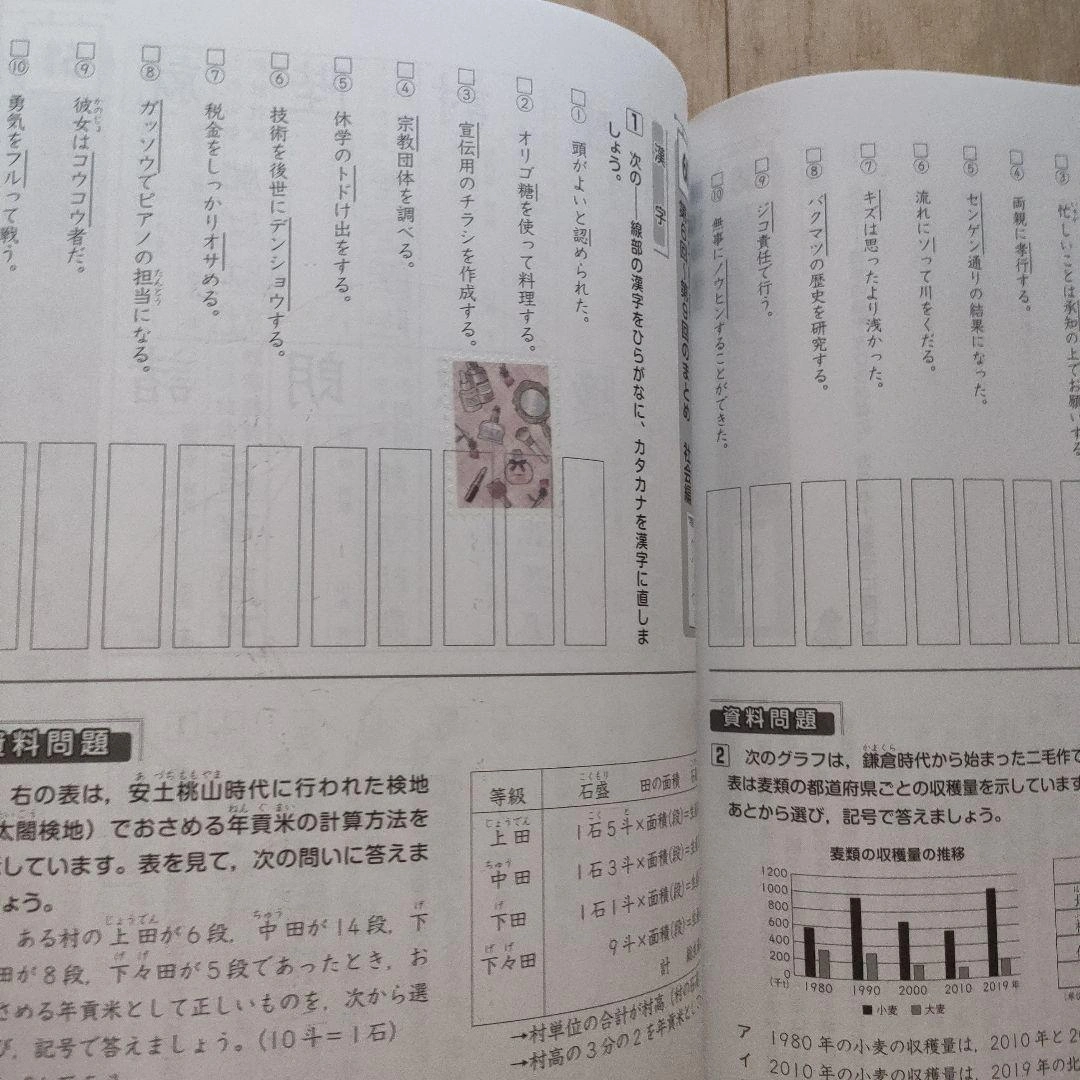 漢字
1 次の――線部の漢字をひらがなに、カタカナを漢字に直しま
しょう。
① 頭がよいと認められた。
② オリゴ糖を使って料理する。
③ 宣伝用のチラシを作成する。
④ 宗教団体を調べる。
⑤ 休学のトドけ出をする。
⑥ 技術を後世にデンショウする。
⑦ 税金をしっかりオサめる。
⑧ ガッソウでピアノの担当になる。
⑨ 彼女はコウコウ者だ。
⑩ 勇気をフルって戦う。
料問題
右の表は，安土桃山時代に行われた検地
太閤検地）でおさめる年貢米の計算方法を
しています。表を見て，次の問いに答えま
ょう。
ある村の上田が6段，中田が14段，下
田が8段，下々田が5段であったとき，お
さめる年貢米として正しいものを，次から選
び，記号で答えましょう。(10斗＝1石)
等級 石盛 田の面積
上田 1石5斗×面積(段)＝
中田 1石3斗×面積(段)＝
下田 1石1斗×面積(段)＝
下々田 9斗×面積(段)＝
計
→村単位の合計が村高
→村高の3分の2を年貢米とし
③ 忙しいことは承知の上でお願いする
④ 両親に孝行する。
⑤ センゲン通りの結果になった。
⑥ 流れにソって川をくだる。
⑦ キズは思ったより浅かった。
⑧ バクマツの歴史を研究する。
⑨ ジコ責任で行う。
⑩ 無事にノウヒンすることができた。
資料問題
2 次のグラフは，鎌倉時代から始まった二毛作で
表は麦類の都道府県ごとの収穫量を示しています
あとから選び，記号で答えましょう。
麦類の収穫量の推移
1200
1000
800
600
400
200
0
(千t)
1980 1990 2000 2010 2019年
■小麦 ■大麦
ア 1980年の小麦の収穫量は，2010年と2
イ 2010年の小麦の収穫量は，2019年の北